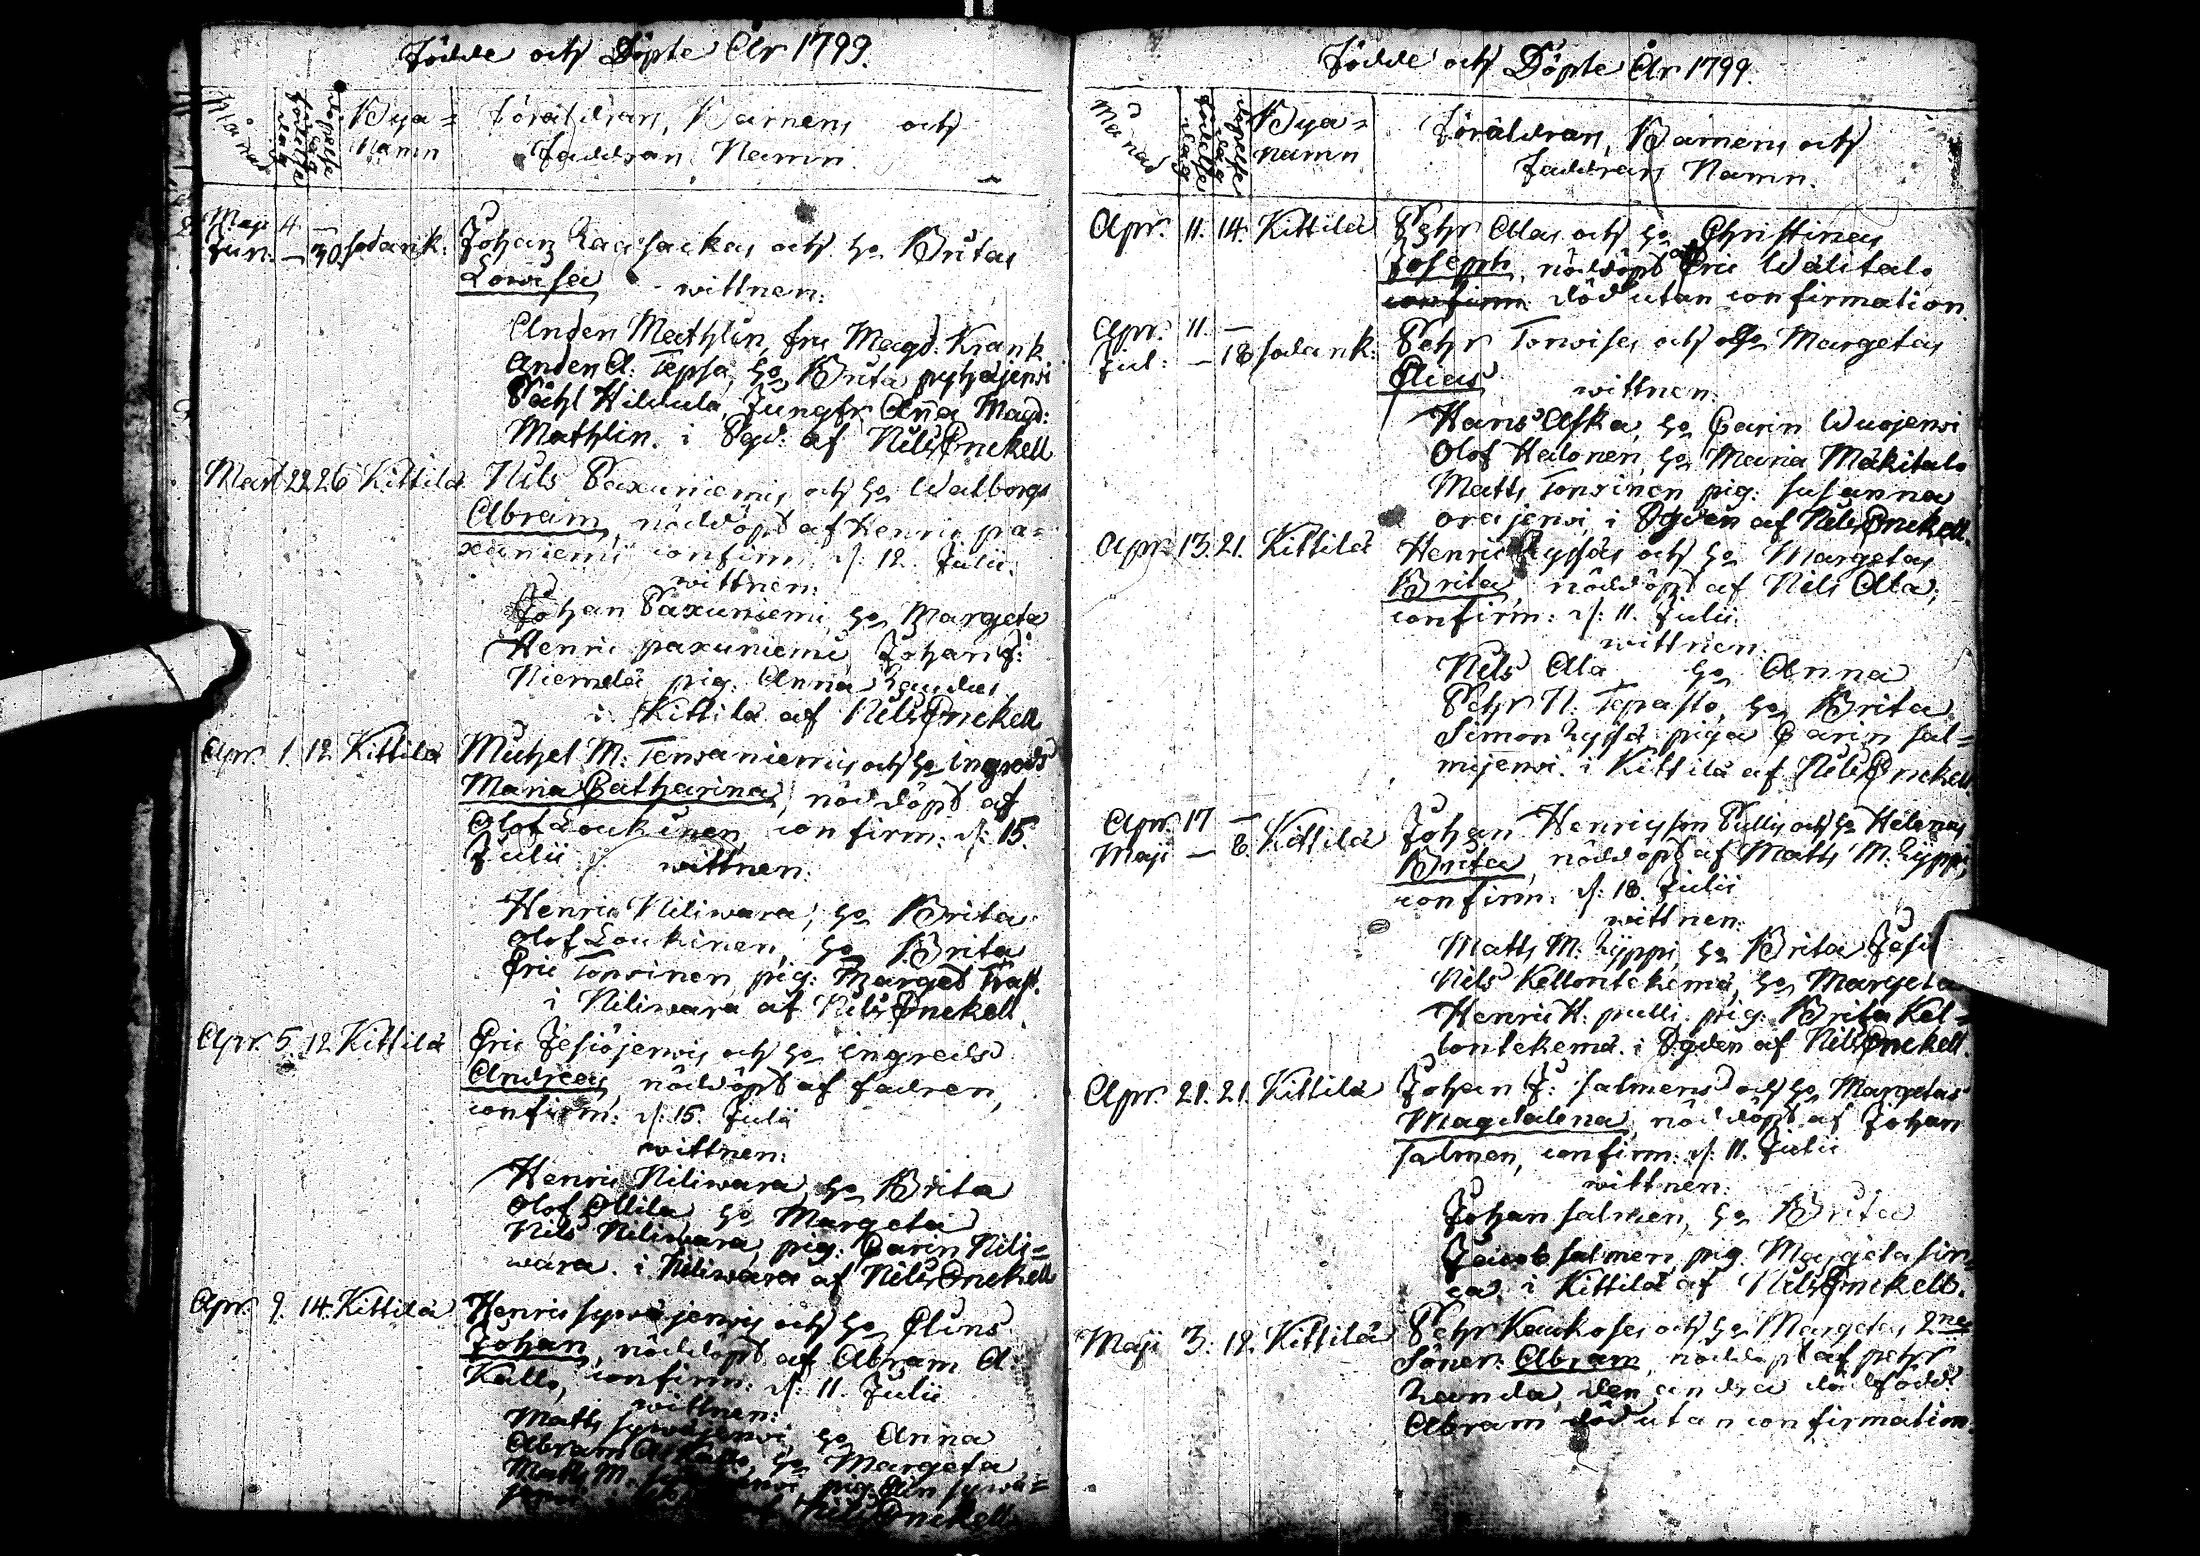 Födde och Döpte År 1799.
Månad Födelse dag Döpelse dag Bya= namn Föräldrars, Barnens och
Faddrars Namn.
Maji 4. —
Jun. — 30. Sodank: Johan och ho Britas
Lowisa wittnen:
Anden Mathlin, fru Magd. Krank
Anden A. Tepsa, ho Brita pyhäjerwi
Påhl Hiltula, Jungfr Aña Magd:
Mathlin. i Sgd: af Nils Enckell
Mart 22. 26 Kittilä Nils Paxuniemis och ho Walborgs
Abram, nöddöpt af Henric pa=
xuniemi confirm. d: 12. Julii.
wittnen:
Johan Paxuniemi, ho Margeta
Henric paxuniemi Johan J:
Niemelä pig. Anna
i Kittilä af Nils Enckell
Apr. 1. 12. Kittilä Michel M: Terwaniemis och ho ingreds
Maria Catharina, nöddöpt af
Olof Loukinen confirm. d: 15.
Julii. wittnen:
Henric Niliwara, ho Brita
Olof Loukinen, ho Brita
Eric Tonsinen, pig: Marget
i Niliwara af Nils Enckell
Apr. 5. 12. Kittilä Eric Jesiöjerwis och ho ingreds
Andreas, nöddöpt af fadren,
confirm: d: 15. Julii
wittnen:
Henric Niliwara, ho Brita
Olof Ollila ho Margeta
Nils Niliwara, pig: Carin Nili=
wara. i Niliwara af Nils Enckell
Apr. 9. 14. Kittilä Henric sywäjerwis och ho Elins
Johan, nöddöpt af Abram A:
Kallo, confirm: d: 11. Julii
wittnen:
Matts sywäjerwi ho Anna
Abram A: Kallo, ho Margeta
Matts M. pig. Elin sywä=
jerwi af Nils Enckell
Födde och Döpte År 1799.
Månad Födelse dag Döpelse dag Bya= namn Föräldrars, Barnens och
Faddrars Namn.
Apr. 11. 14. Kittilä Pehr Alas och ho Christinas
Joseph, nöddöpt af Eric Wälitalo
confirm. död utan confirmation.
Apr. 11. —
Jul: — 18 Sodank: Pehr Torwises och ho Margetas
Elias wittnen:
Hans Aska, ho Carin Wuojerwi
Olof Halonen, ho Maria Mäkitalo
Matts Tonsinen pig: susanna
orajerwi i Sgden af Nils Enckell.
Apr. 13. 21. Kittilä Henric Lyssäs och ho Margetas
Brita, nöddöpt af Nils Ala,
confirm: d: 11. Julii.
wittnen:
Nils Ala ho Anna
Pehr N: Tepasto, ho Brita
Simon Lyssä piga Carin sal=
mijerwi. i Kittilä af Nils Enckell
Apr. 17 —
Maji — 8. Kittilä Johan Henricsson Pullis och ho Helenas
Brita, nöddöpt af Matts M. Lyppi,
confirm. d: 18. Julii
wittnen:
Matts M. Lyppi, ho Brita
Nils Kellontekemä, ho Margeta
Henric H. pulli. pig: Brita Kel=
lontekemä. i Sgden af Nils Enckell.
Apr. 21. 21. Kittilä Johan J: salmens och ho Margetas
Magdalena, nöddöpt af Johan
salmen, confirm: d: 11. Julii
wittnen:
Johan salmen, ho Brita
Jacob salmen, pig. Margeta sir=
ca i Kittilä af Nils Enckell.
Maji 3. 12. Kittilä Pehr Kaukoses och ho Margetas 2ne
söner: Abram, nöddöpt af pehr
den andra dödfödd.
Abram död utan confirmation.